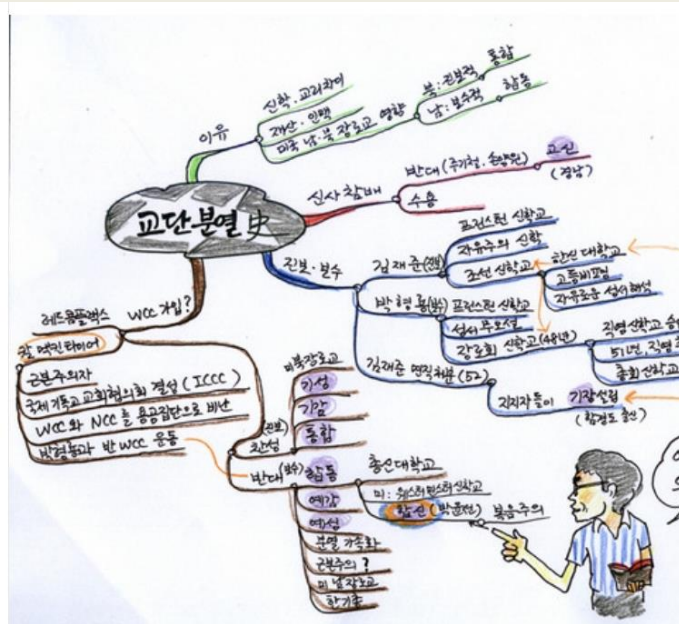 교단분열史
이유
신학·교리차이
재산·인맥
미국 남·북 장로교 영향
북:진보적
통합
남:보수적
합동
신사참배
반대(주기철, 손양원)
고신
(경남)
수용
진보·보수
김재준(진보)
프린스턴 신학교
자유주의 신학
조선신학교
한신대학교
고등비평
자유로운 성서해석
박형룡(보수)
프린스턴 신학교
성서무오설
장로회 신학교(48년)
직영신학교
51년, 직영
총회신학교
김재준 면직처분(52)
지지자들이
기장설립
(함경도 출신)
WCC 가입?
칼 맥킨타이어
근본주의자
국제기독교교회협의회 결성 (ICCC)
WCC와 NCC를 용공집단으로 비난
박형룡과 반WCC 운동
찬성
(진보)
미북장로교
기성
기감
통합
반대(보수)
합동
총신대학교
미:웨스터민스터신학교
합신(박윤선)
복음주의
예감
예성
분열 가속화
근본주의?
미남장로교
한기총